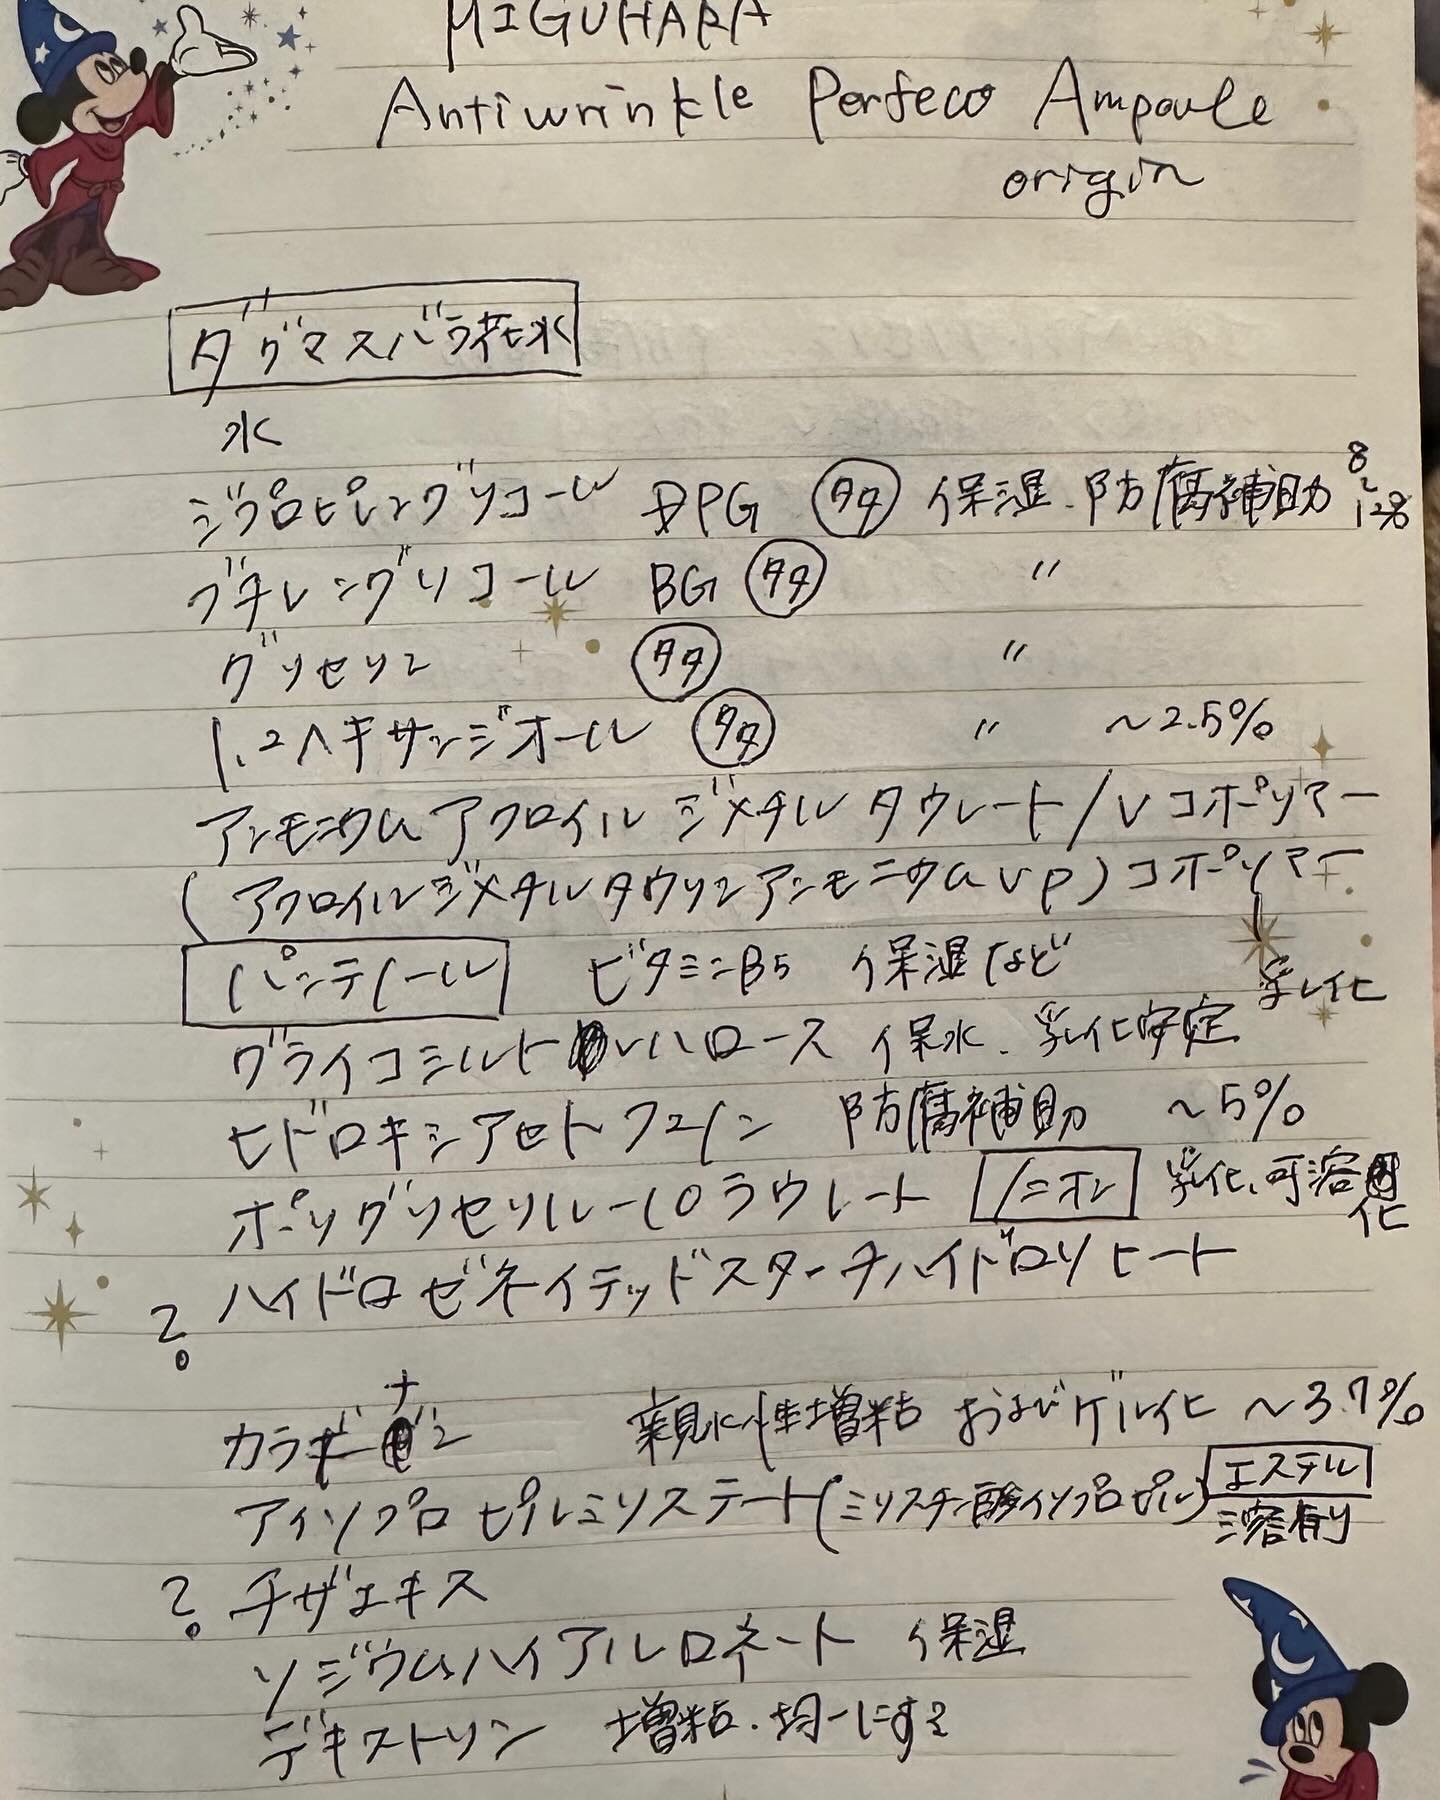 MIGUHARA
Antiwrinkle Perfeco Ampoule
origin
ダグマスバラ花水
水
ジプロピレングリコール DPG 多タ 保湿・防腐補助 8~12%
ブチレングリコール BG 多タ 〃
グリセリン 多タ 〃
1.2ヘキサンジオール 多タ 〃 ~2.5%
アンモニウムアクロイルジメチルタウレート/Vコポリマー
(アクロイルジメチルタウリンアンモニウムVP)コポリマー
乳化
パンテノール ビタミンB5 保湿など
グライコシルトレハロース 保水、乳化安定
ヒドロキシアセトフェノン 防腐補助 ~5%
ポリグリセリル-10ラウレート ノニオン 乳化、可溶化
? ハイドロゼネイテッドスターチハイドロリヒート
カラギナン 親水性増粘およびゲル化 ~3.7%
アイソプロピルミリステート(ミリスチン酸イソプロピル) エステル 溶剤
? チザエキス
ソジウムハイアルロネート 保湿
デキストリン 増粘・均一にする